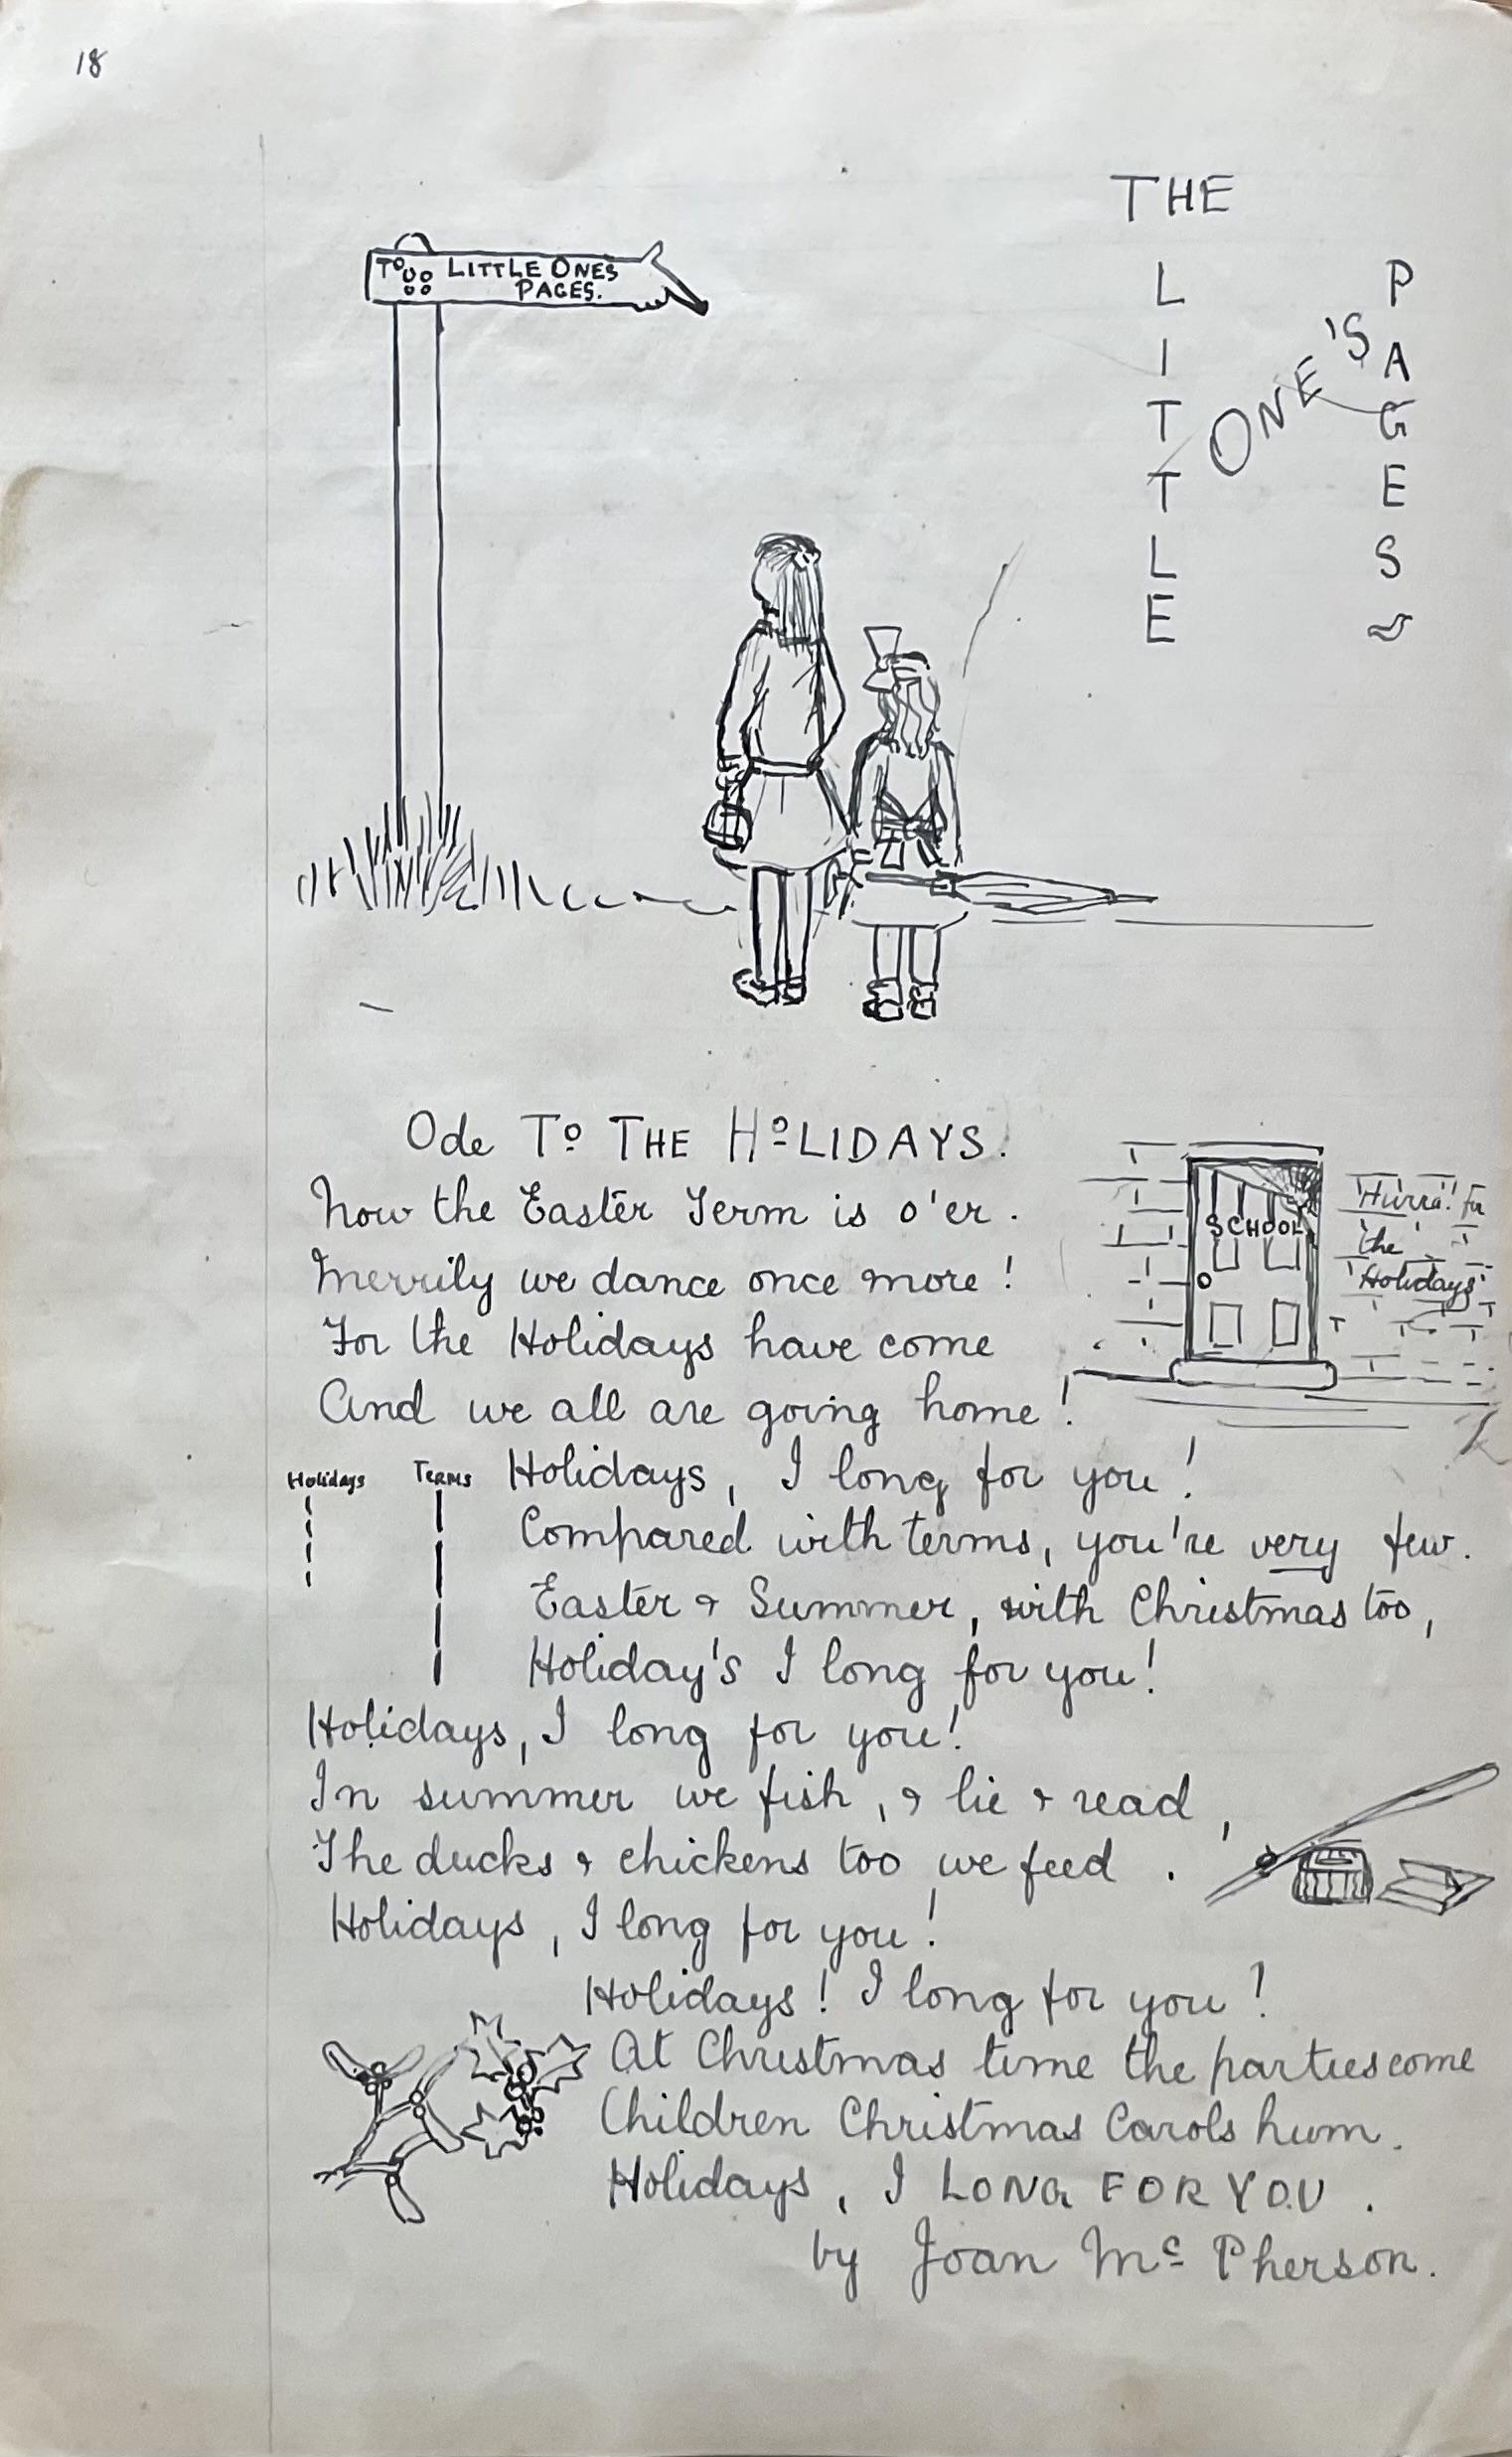 18
THE
LITTLE
ONE'S
PAGES
TO LITTLE ONES
PAGES.
Ode To THE HOLIDAYS.
Now the Easter Term is o'er.
Merrily we dance once more!
For the Holidays have come
And we all are going home!
SCHOOL
Hurra! for
the
Holidays
Holidays Terms
Holidays, I long for you!
Compared with terms, you're very few.
Easter & Summer, with Christmas too,
Holiday's I long for you!
Holidays, I long for you!
In summer we fish, & lie & read,
The ducks & chickens too we feed.
Holidays, I long for you!
Holidays! I long for you!
At Christmas time the parties come
Children Christmas Carols hum.
Holidays, I LONG FOR YOU.
by Joan Mc Pherson.